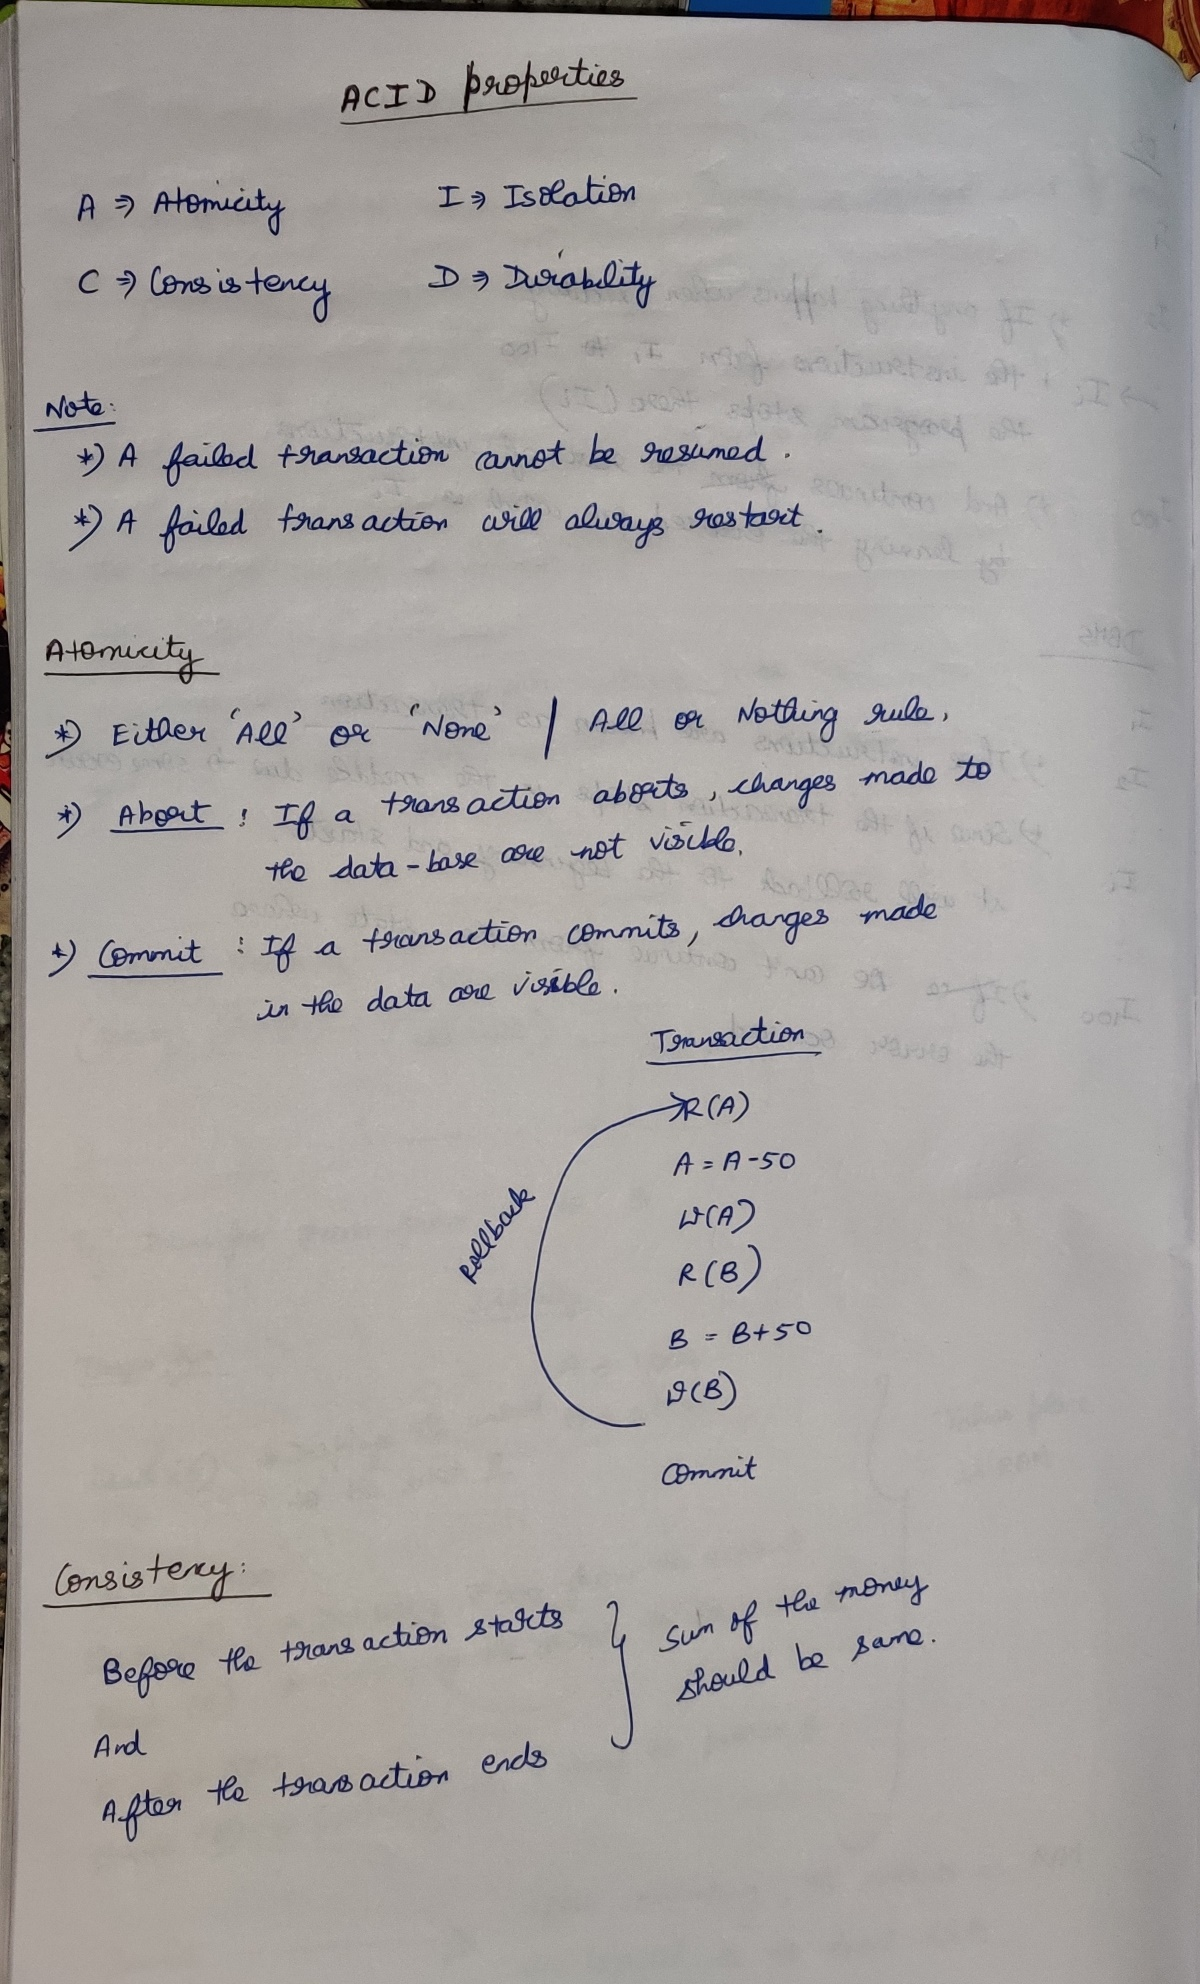 ACID properties
A ⇒ Atomicity I ⇒ Isolation
C ⇒ Consistency D ⇒ Durability
Note:
*) A failed transaction cannot be resumed.
*) A failed transaction will always restart.
Atomicity
*) Either 'All' or 'None' | All or Nothing rule.
*) Abort : If a transaction aborts, changes made to
the data-base are not visible.
*) Commit : If a transaction commits, changes made
in the data are visible.
Transaction
R(A)
A = A-50
W(A)
Rollback
R(B)
B = B+50
W(B)
Commit
Consistency:
Before the transaction starts
And
After the transaction ends
} Sum of the money
should be same.